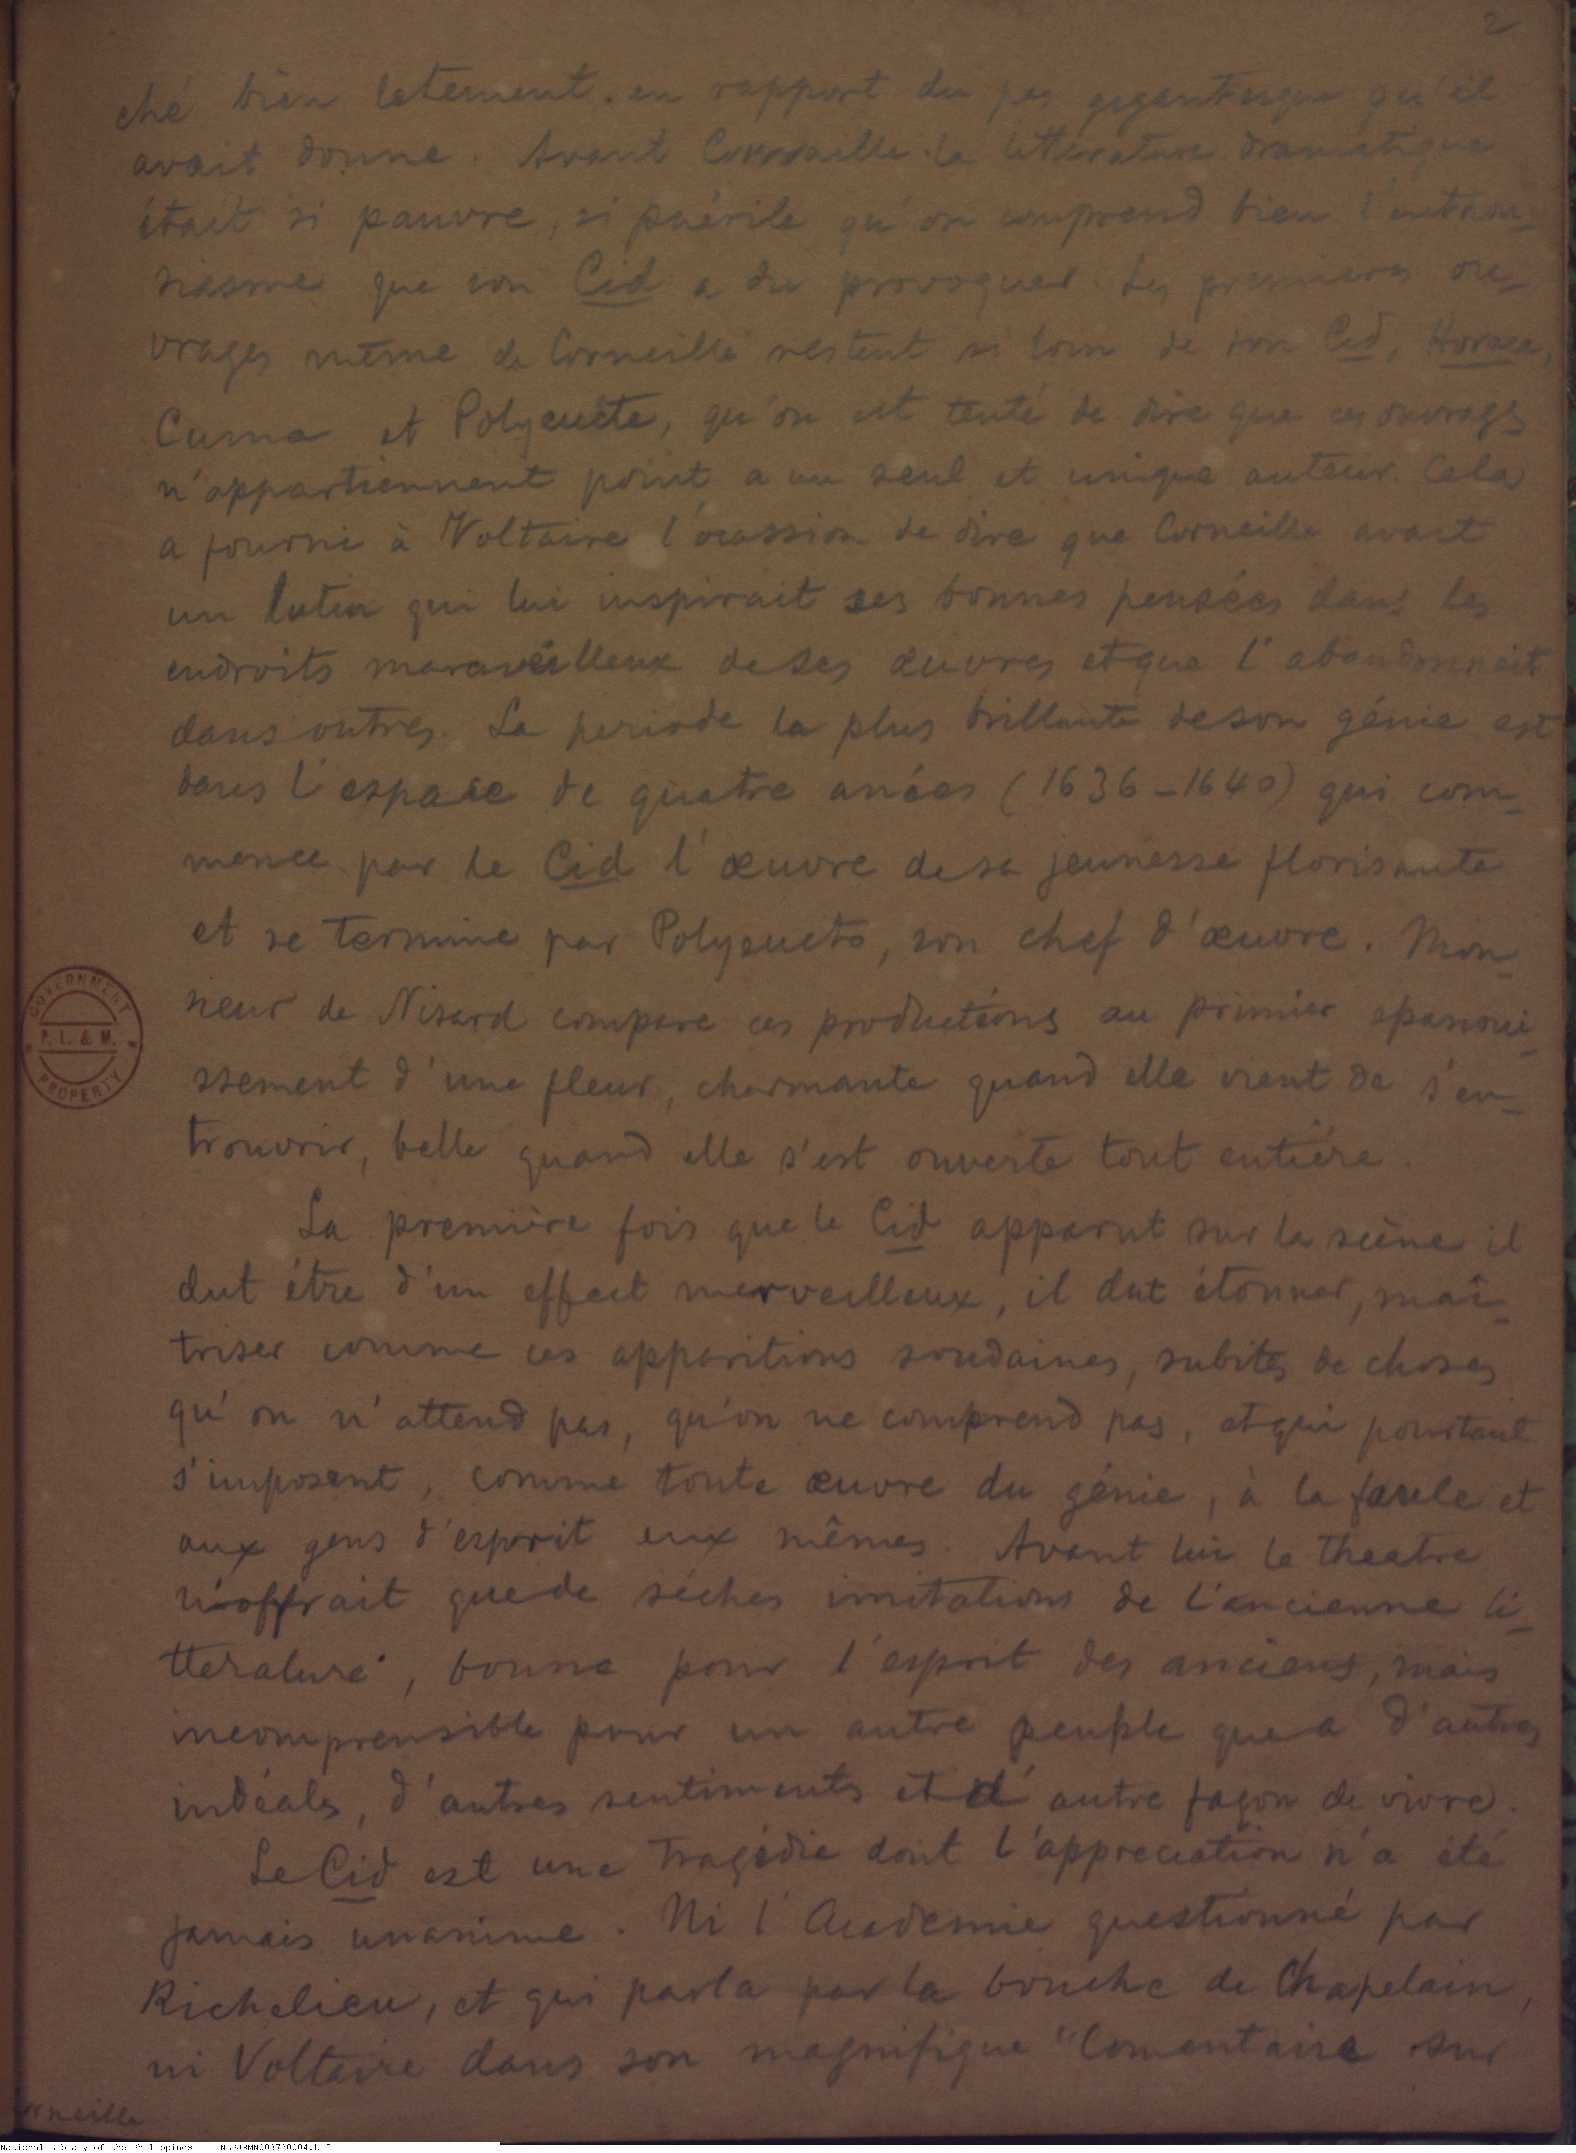 2
ché bien letement. en rapport du pas gigantesque qu'il
avait donne. Avant Corneille la litterature dramatique
était si pauvre, si puérile qu'on comprend bien l'enthou-
siasme que son Cid a du provoquer. Les premieres ou-
vrages même de Corneille restent si loin de son Cid, Horace,
Cinna et Polyeucte, qu'on est tenté de dire que ces ouvrages
n'appartiennent point a un seul et unique auteur. Cela
a fourni à Voltaire l'ocassion de dire que Corneille avait
un lutin qui lui inspirait ses bonnes pensées dans les
endroits maraveilleux de ses œuvres et que l'abandonnait
dans outres. La periode la plus brillante de son génie est
dans l'espace de quatre anées (1636-1640) qui com-
mence par le Cid l'œuvre de sa jeunesse florisante
et se termine par Polyeucto, son chef d'œuvre. Mon-
sieur de Nisard compare ces productions au primier epanoui-
ssement d'une fleur, charmante quand elle vient de s'en-
trouvrir, belle quand elle s'est ouverte tout entière.
La première fois que le Cid apparut sur la scène il
dut être d'un effect merveilleux, il dut étonner, maî-
triser comme ces apparitions soudaines, subites de choses
qu'on n'attend pas, qu'on ne comprend pas, et qui pourtant
s'imposent, comme toute œuvre du génie, à la foule et
aux gens d'esprit eux mêmes. Avant lui le theatre
n'offrait que de séches imitations de l'ancienne li-
tterature, bonne pour l'esprit des anciens, mais
incomprensible pour un autre peuple que a d'autres
indéales, d'autres sentiments et d'autre façon de vivre.
Le Cid est une Tragédie dont l'appreciation n'a été
jamais unanime. Ni l'Academie questionné par
Richelieu, et qui parla par la bouche de Chapelain,
ni Voltaire dans son magnifique "Comentaire sur
orneille
GOVERNMENT
P. L. & M.
PROPERTY
National Library of the Philippines